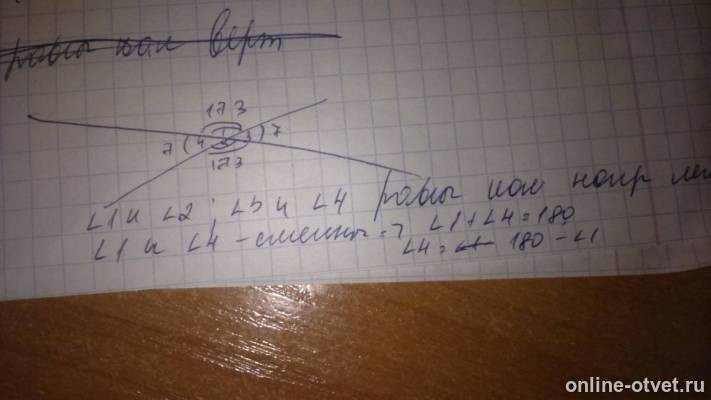 равны как верт
173
7 ( 4 1 3 ) 7
173
∠1 и ∠2 ; ∠3 и ∠4 равны как
∠1 и ∠4 - смежны => ∠1 + ∠4 = 180
∠4 = 180 - ∠1
online-otvet.ru